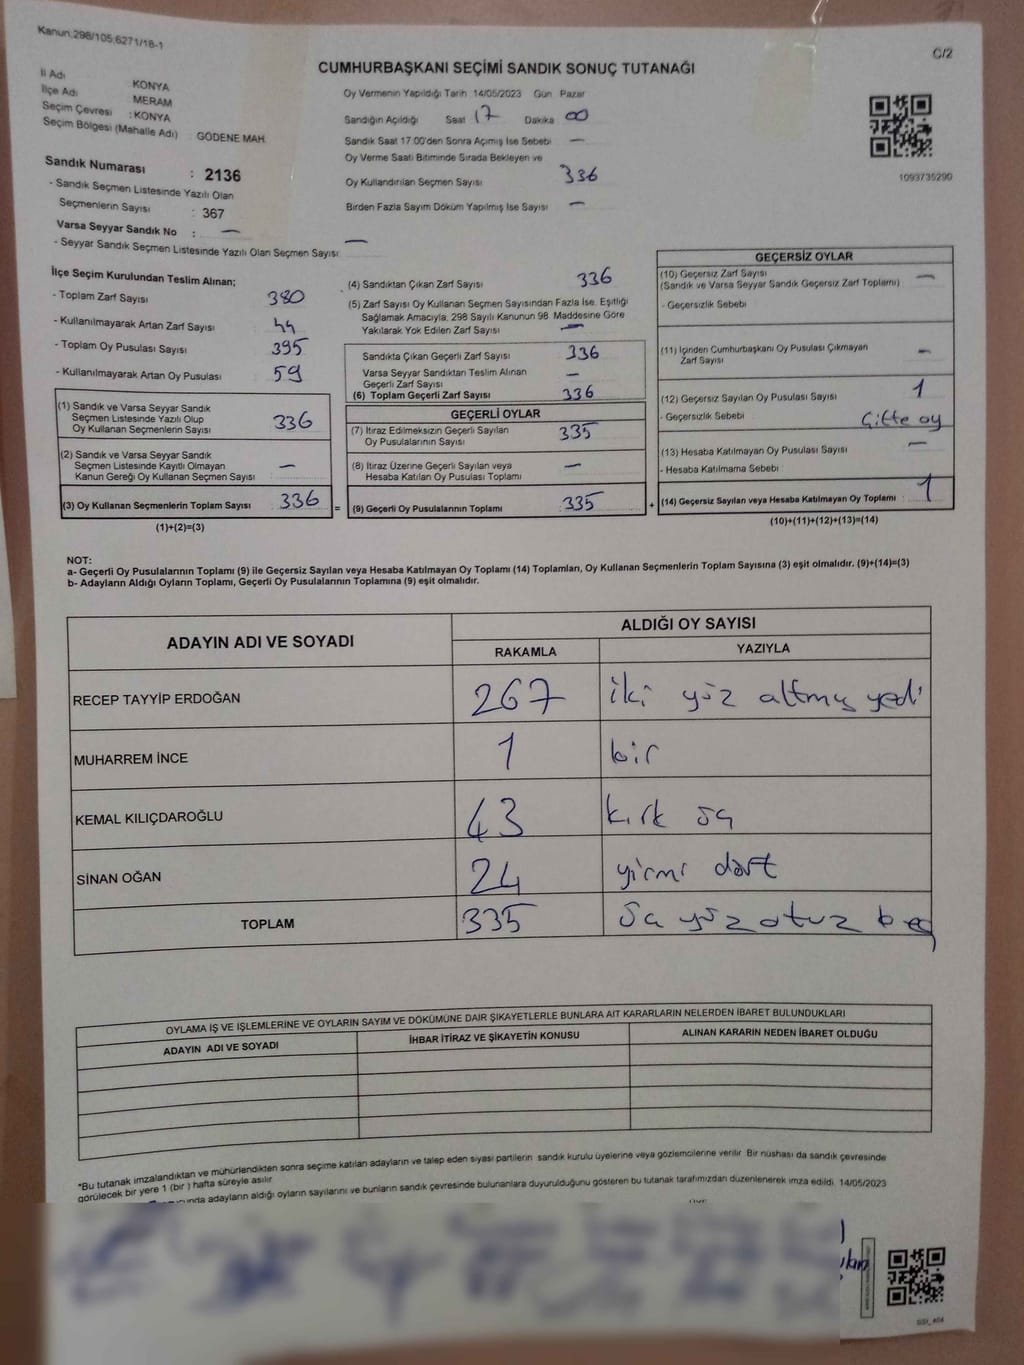 Kanun:298/105;6271/18-1
C/2
CUMHURBAŞKANI SEÇİMİ SANDIK SONUÇ TUTANAĞI
İl Adı KONYA
İlçe Adı MERAM
Seçim Çevresi : KONYA
Seçim Bölgesi (Mahalle Adı) : GÖDENE MAH.
Sandık Numarası : 2136
- Sandık Seçmen Listesinde Yazılı Olan
Seçmenlerin Sayısı : 367
Varsa Seyyar Sandık No : —
- Seyyar Sandık Seçmen Listesinde Yazılı Olan Seçmen Sayısı —
Oy Vermenin Yapıldığı Tarih 14/05/2023 Gün Pazar
Sandığın Açıldığı Saat 17 Dakika 00
Sandık Saat 17.00'den Sonra Açımış İse Sebebi —
Oy Verme Saati Bitiminde Sırada Bekleyen ve
Oy Kullandırılan Seçmen Sayısı 336
Birden Fazla Sayım Döküm Yapılmış İse Sayısı —
1093735290
İlçe Seçim Kurulundan Teslim Alınan;
- Toplam Zarf Sayısı 380
- Kullanılmayarak Artan Zarf Sayısı 44
- Toplam Oy Pusulası Sayısı 395
- Kullanılmayarak Artan Oy Pusulası 59
(1) Sandık ve Varsa Seyyar Sandık
Seçmen Listesinde Yazılı Olup
Oy Kullanan Seçmenlerin Sayısı 336
(2) Sandık ve Varsa Seyyar Sandık
Seçmen Listesinde Kayıtlı Olmayan
Kanun Gereği Oy Kullanan Seçmen Sayısı —
(3) Oy Kullanan Seçmenlerin Toplam Sayısı 336 =
(1)+(2)=(3)
(4) Sandıktan Çıkan Zarf Sayısı 336
(5) Zarf Sayısı Oy Kullanan Seçmen Sayısından Fazla İse, Eşitliği
Sağlamak Amacıyla, 298 Sayılı Kanunun 98. Maddesine Göre
Yakılarak Yok Edilen Zarf Sayısı —
Sandıkta Çıkan Geçerli Zarf Sayısı 336
Varsa Seyyar Sandıktan Teslim Alınan
Geçerli Zarf Sayısı —
(6) Toplam Geçerli Zarf Sayısı 336
GEÇERLİ OYLAR
(7) İtiraz Edilmeksizin Geçerli Sayılan
Oy Pusulalarının Sayısı 335
(8) İtiraz Üzerine Geçerli Sayılan veya
Hesaba Katılan Oy Pusulası Toplamı —
(9) Geçerli Oy Pusulalarının Toplamı 335 +
GEÇERSİZ OYLAR
(10) Geçersiz Zarf Sayısı —
(Sandık ve Varsa Seyyar Sandık Geçersiz Zarf Toplamı)
- Geçersizlik Sebebi
(11) İçinden Cumhurbaşkanı Oy Pusulası Çıkmayan
Zarf Sayısı —
(12) Geçersiz Sayılan Oy Pusulası Sayısı 1
- Geçersizlik Sebebi Çifte oy
(13) Hesaba Katılmayan Oy Pusulası Sayısı —
- Hesaba Katılmama Sebebi
(14) Geçersiz Sayılan veya Hesaba Katılmayan Oy Toplamı : 1
(10)+(11)+(12)+(13)=(14)
NOT:
a- Geçerli Oy Pusulalarının Toplamı (9) ile Geçersiz Sayılan veya Hesaba Katılmayan Oy Toplamı (14) Toplamları, Oy Kullanan Seçmenlerin Toplam Sayısına (3) eşit olmalıdır. (9)+(14)=(3)
b- Adayların Aldığı Oyların Toplamı, Geçerli Oy Pusulalarının Toplamına (9) eşit olmalıdır.
ADAYIN ADI VE SOYADI ALDIĞI OY SAYISI
RAKAMLA YAZIYLA
RECEP TAYYİP ERDOĞAN 267 iki yüz altmış yedi
MUHARREM İNCE 1 bir
KEMAL KILIÇDAROĞLU 43 kırk üç
SİNAN OĞAN 24 yirmi dört
TOPLAM 335 üç yüz otuz beş
OYLAMA İŞ VE İŞLEMLERİNE VE OYLARIN SAYIM VE DÖKÜMÜNE DAİR ŞİKAYETLERLE BUNLARA AİT KARARLARIN NELERDEN İBARET BULUNDUKLARI
ADAYIN ADI VE SOYADI İHBAR İTİRAZ VE ŞİKAYETİN KONUSU ALINAN KARARIN NEDEN İBARET OLDUĞU
*Bu tutanak imzalandıktan ve mühürlendikten sonra seçime katılan adayların ve talep eden siyasi partilerin sandık kurulu üyelerine veya gözlemcilerine verilir. Bir nüshası da sandık çevresinde
görülecek bir yere 1 (bir) hafta süreyle asılır.
adayların aldığı oyların sayılarını ve bunların sandık çevresinde bulunanlara duyurulduğunu gösteren bu tutanak tarafımızdan düzenlenerek imza edildi. 14/05/2023